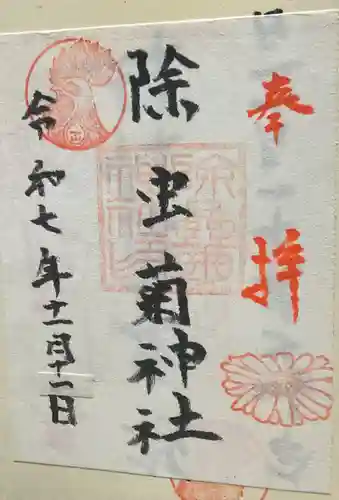 奉拝
除虫菊神社
令和七年十一月十一日